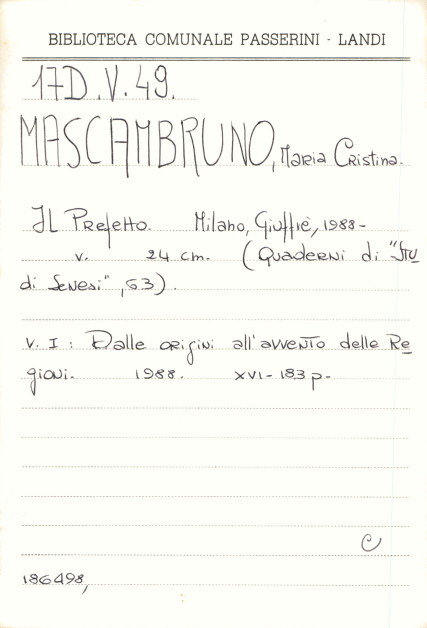 BIBLIOTECA COMUNALE PASSERINI - LANDI
17D.V.49.
MASCAMBRUNO, Maria Cristina.
IL Prefetto. Milano, Giuffrè, 1988-
v. 24 cm. (Quaderni di "Stu
di Senesi", 63).
V. I: Dalle origini all'avvento delle Re
gioni. 1988. XVI-183 p.
C
186498,